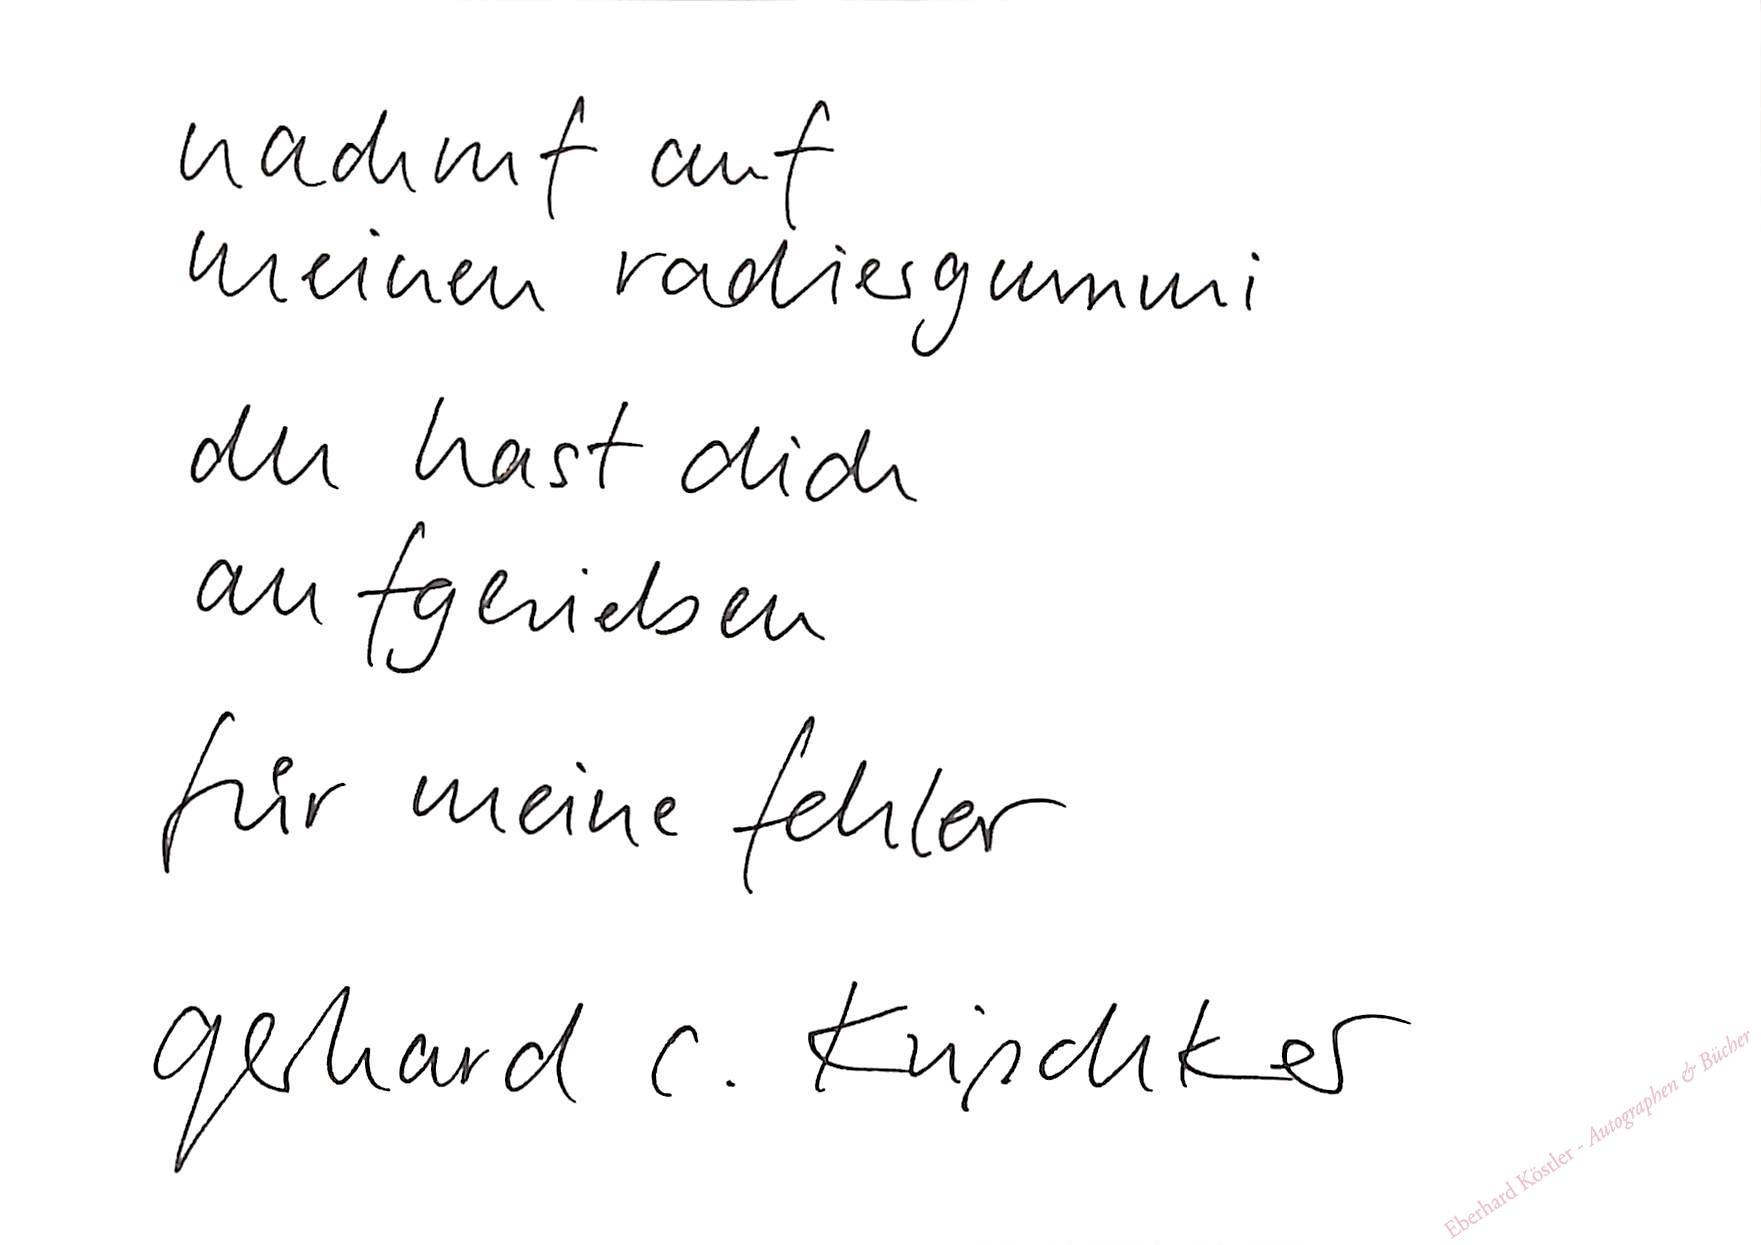 nachruf auf
meinen radiergummi
du hast dich
aufgerieben
für meine fehler
gerhard c. Krischker
Eberhard Köstler - Autographen & Bücher